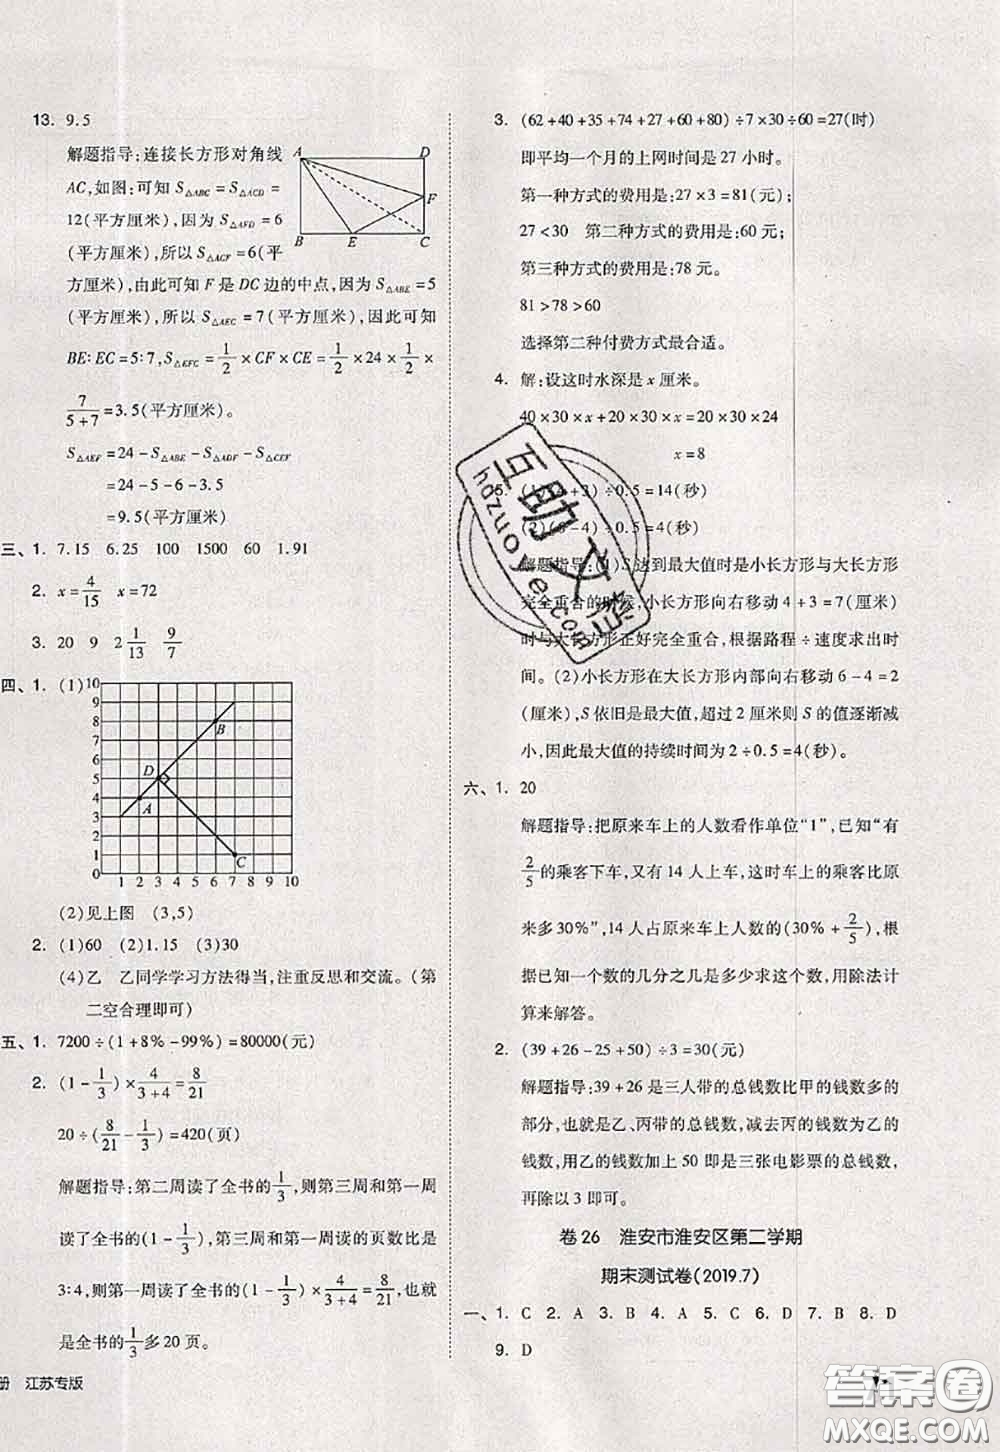 13. 9.5
解题指导:连接长方形对角线
AC,如图:可知 S△ABC = S△ACD =
12(平方厘米),因为 S△AFD = 6
(平方厘米),所以 S△ACF = 6(平
方厘米),由此可知 F 是 DC 边的中点,因为 S△ABE = 5
(平方厘米),所以 S△AEC = 7(平方厘米),因此可知
BE:EC = 5:7, S△EFC = 1/2 × CF × CE = 1/2 × 24 × 1/2 ×
7/(5+7) = 3.5(平方厘米)。
S△AEF = 24 - S△ABE - S△ADF - S△CEF
= 24 - 5 - 6 - 3.5
= 9.5(平方厘米)
A D F B E C
三、1. 7.15 6.25 100 1500 60 1.91
2. x = 4/15 x = 72
3. 20 9 2 1/13 9/7
四、1. (1)
10 9 8 7 6 5 4 3 2 1 0
D B A C
1 2 3 4 5 6 7 8 9 10
(2)见上图 (3,5)
2. (1)60 (2)1.15 (3)30
(4)乙 乙同学学习方法得当,注重反思和交流。(第
二空合理即可)
五、1. 7200 ÷ (1 + 8% - 99%) = 80000(元)
2. (1 - 1/3) × 4/(3+4) = 8/21
20 ÷ (8/21 - 1/3) = 420(页)
解题指导:第二周读了全书的 1/3,则第三周和第一周
读了全书的(1 - 1/3),第三周和第一周读的页数比是
3:4,则第一周读了全书的(1 - 1/3) × 4/(3+4) = 8/21,也就
是全书的 1/3 多 20 页。
册 江苏专版
3. (62 + 40 + 35 + 74 + 27 + 60 + 80) ÷ 7 × 30 ÷ 60 = 27(时)
即平均一个月的上网时间是 27 小时。
第一种方式的费用是:27 × 3 = 81(元)
27 < 30 第二种方式的费用是:60 元;
第三种方式的费用是:78 元。
81 > 78 > 60
选择第二种付费方式最合适。
4. 解:设这时水深是 x 厘米。
40 × 30 × x + 20 × 30 × x = 20 × 30 × 24
x = 8
5. (1) ÷ 0.5 = 14(秒)
(2)(6 - 4) ÷ 0.5 = 4(秒)
解题指导:(1)S 达到最大值时是小长方形与大长方形
完全重合的时候,小长方形向右移动 4 + 3 = 7(厘米)
时与大长方形正好完全重合,根据路程 ÷ 速度求出时
间。(2)小长方形在大长方形内部向右移动 6 - 4 = 2
(厘米),S 依旧是最大值,超过 2 厘米则 S 的值逐渐减
小,因此最大值的持续时间为 2 ÷ 0.5 = 4(秒)。
六、1. 20
解题指导:把原来车上的人数看作单位"1",已知"有
2/5 的乘客下车,又有 14 人上车,这时车上的乘客比原
来多 30%",14 人占原来车上人数的(30% + 2/5),根
据已知一个数的几分之几是多少求这个数,用除法计
算来解答。
2. (39 + 26 - 25 + 50) ÷ 3 = 30(元)
解题指导:39 + 26 是三人带的总钱数比甲的钱数多的
部分,也就是乙、丙带的总钱数,减去丙的钱数为乙的
钱数,用乙的钱数加上 50 即是三张电影票的总钱数,
再除以 3 即可。
卷 26 淮安市淮安区第二学期
期末测试卷(2019.7)
一、1. C 2. A 3. B 4. A 5. C 6. D 7. B 8. D
9. D
互助文档
hdzuoye.com
答案圈
MXQE.COM